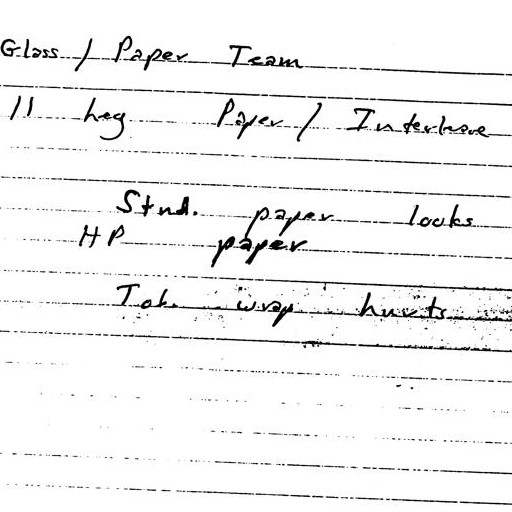 Glass / Paper Team
11 hey Paper / Interleave
Stnd. paper looks
HP paper
Tok. wrap hurts